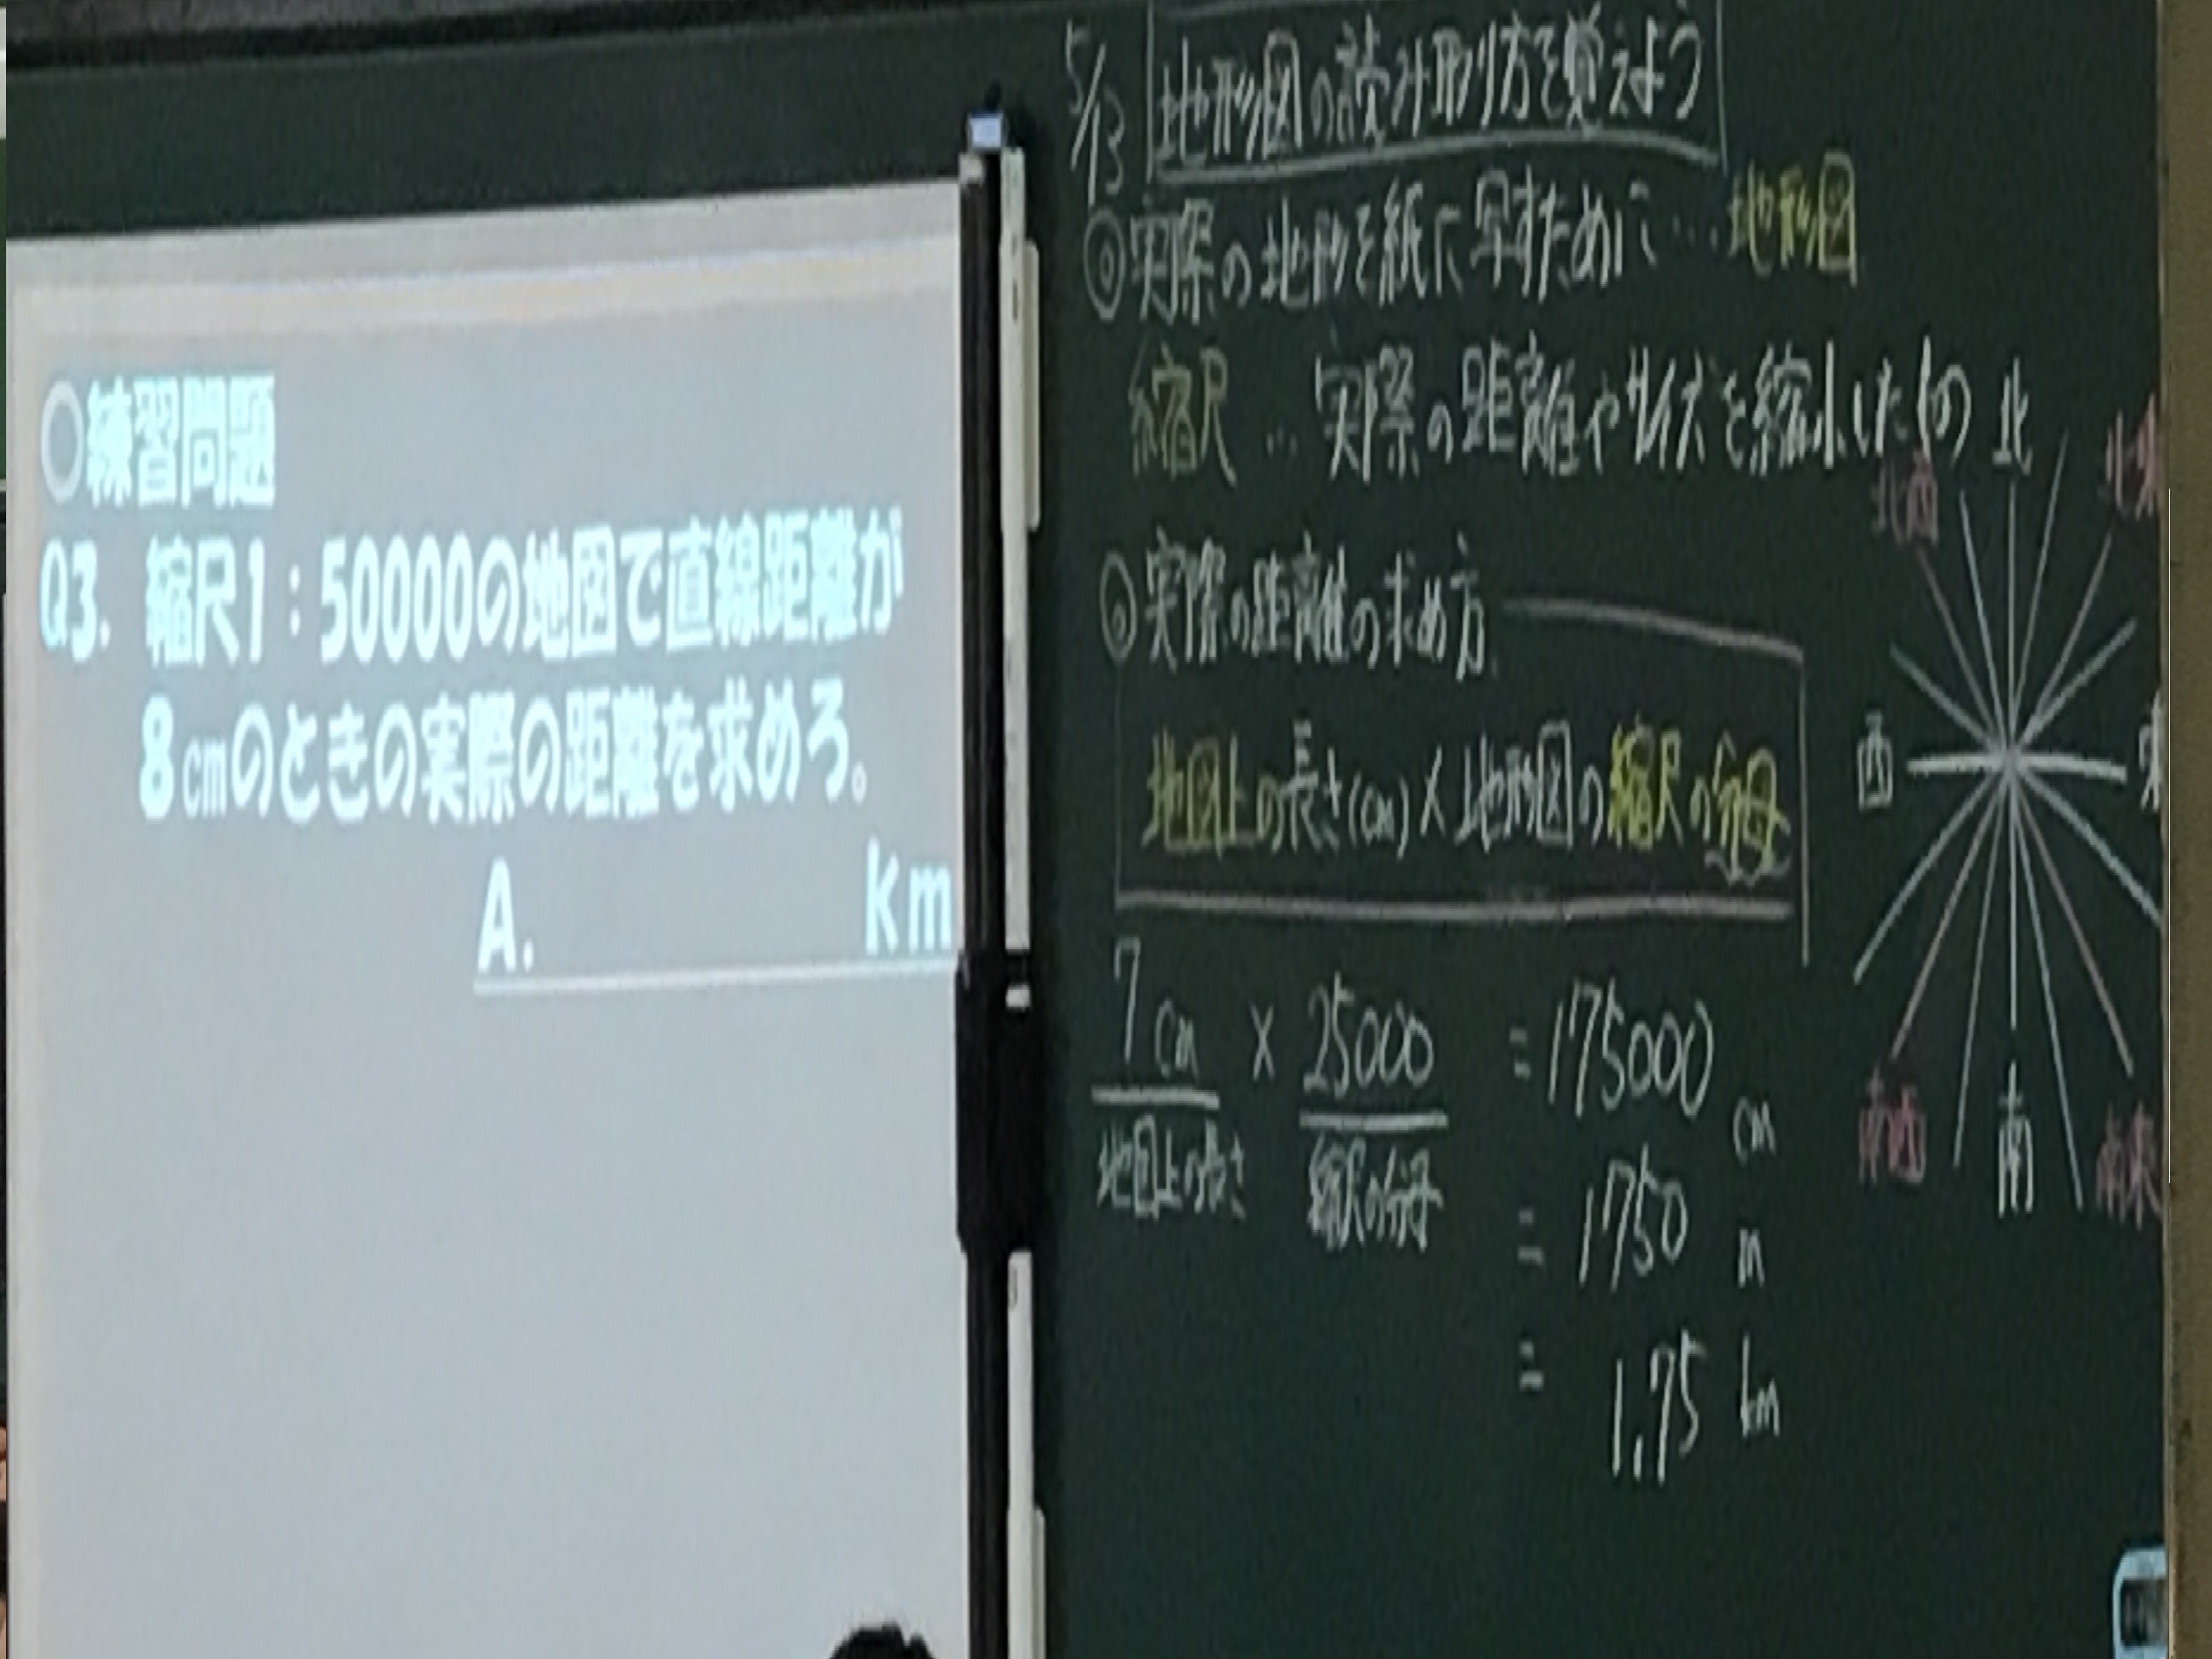 ○練習問題
Q3. 縮尺1:50000の地図で直線距離が
8cmのときの実際の距離を求めろ。
A. km
5/13 地形図の読み取り方を覚えよう
◎実際の地形を紙に写すために…地形図
縮尺…実際の距離やサイズを縮小したもの
◎実際の距離の求め方
地図上の長さ(cm)×地形図の縮尺の分母
7cm × 25000 = 175000 cm
地図上の長さ 縮尺の分母
= 1750 m
= 1.75 km
北
北西 北東
西 東
南西 南東
南